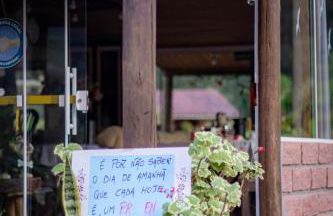 É POR NÃO SABER
O DIA DE AMANHÃ
QUE CADA HOJE
É UM PR EN